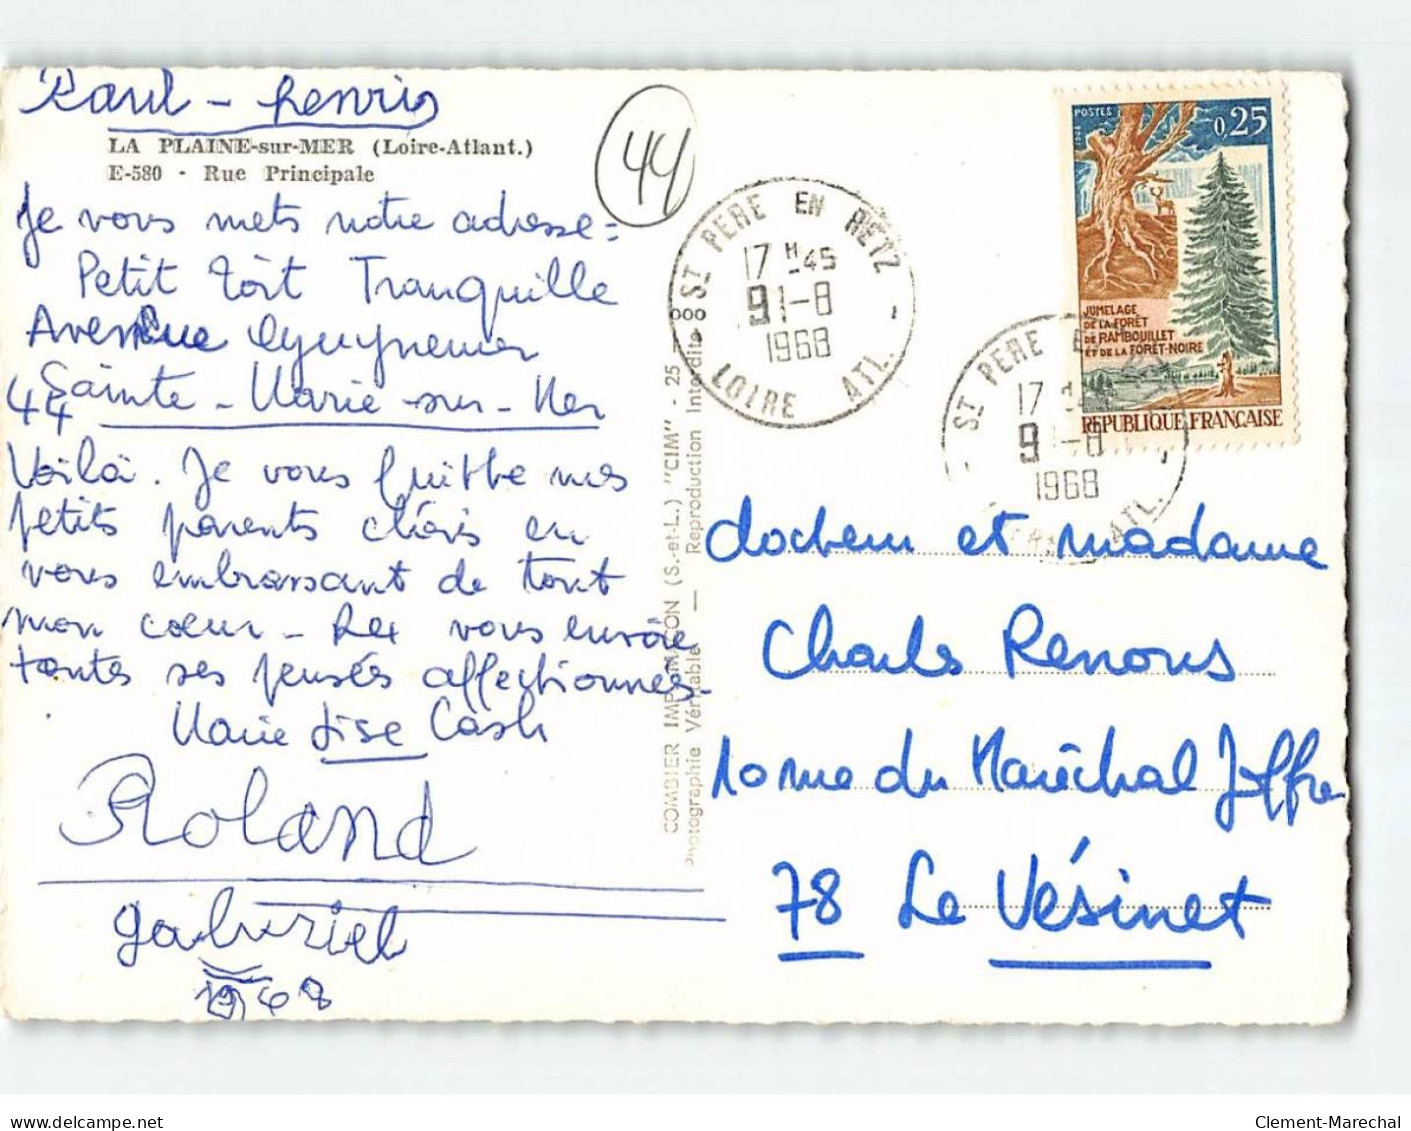 Karl - henris
LA PLAINE-sur-MER (Loire-Atlant.)
E-580 - Rue Principale
44
Je vous mets notre adresse:
Petit Toit Tranquille
Avenue
44 Sainte-Marie-sur-Mer
Voilà. Je vous quitte mes
petits parents chéris en
vous embrassant de tout
mon coeur - Rex vous envoie
toutes ses pensées affectionnées.
Marie Lise Cash
Roland
gabriel
1968
COMBIER IMP. MACON (S.-et-L.) "CIM" - 25
Photographie Véritable — Reproduction Interdite
ST PERE EN RETZ
17 H -45
9 1-8
1968
LOIRE ATL.
POSTES
0,25
JUMELAGE
DE LA FORÊT
DE RAMBOUILLET
ET DE LA FORÊT-NOIRE
REPUBLIQUE FRANÇAISE
ST PERE EN
17 H
9 1-8
1968
ATL.
docteur et madame
Charles Renous
10 rue du Maréchal Joffre
78 Le Vésinet
delcampe.net
Clement-Marechal